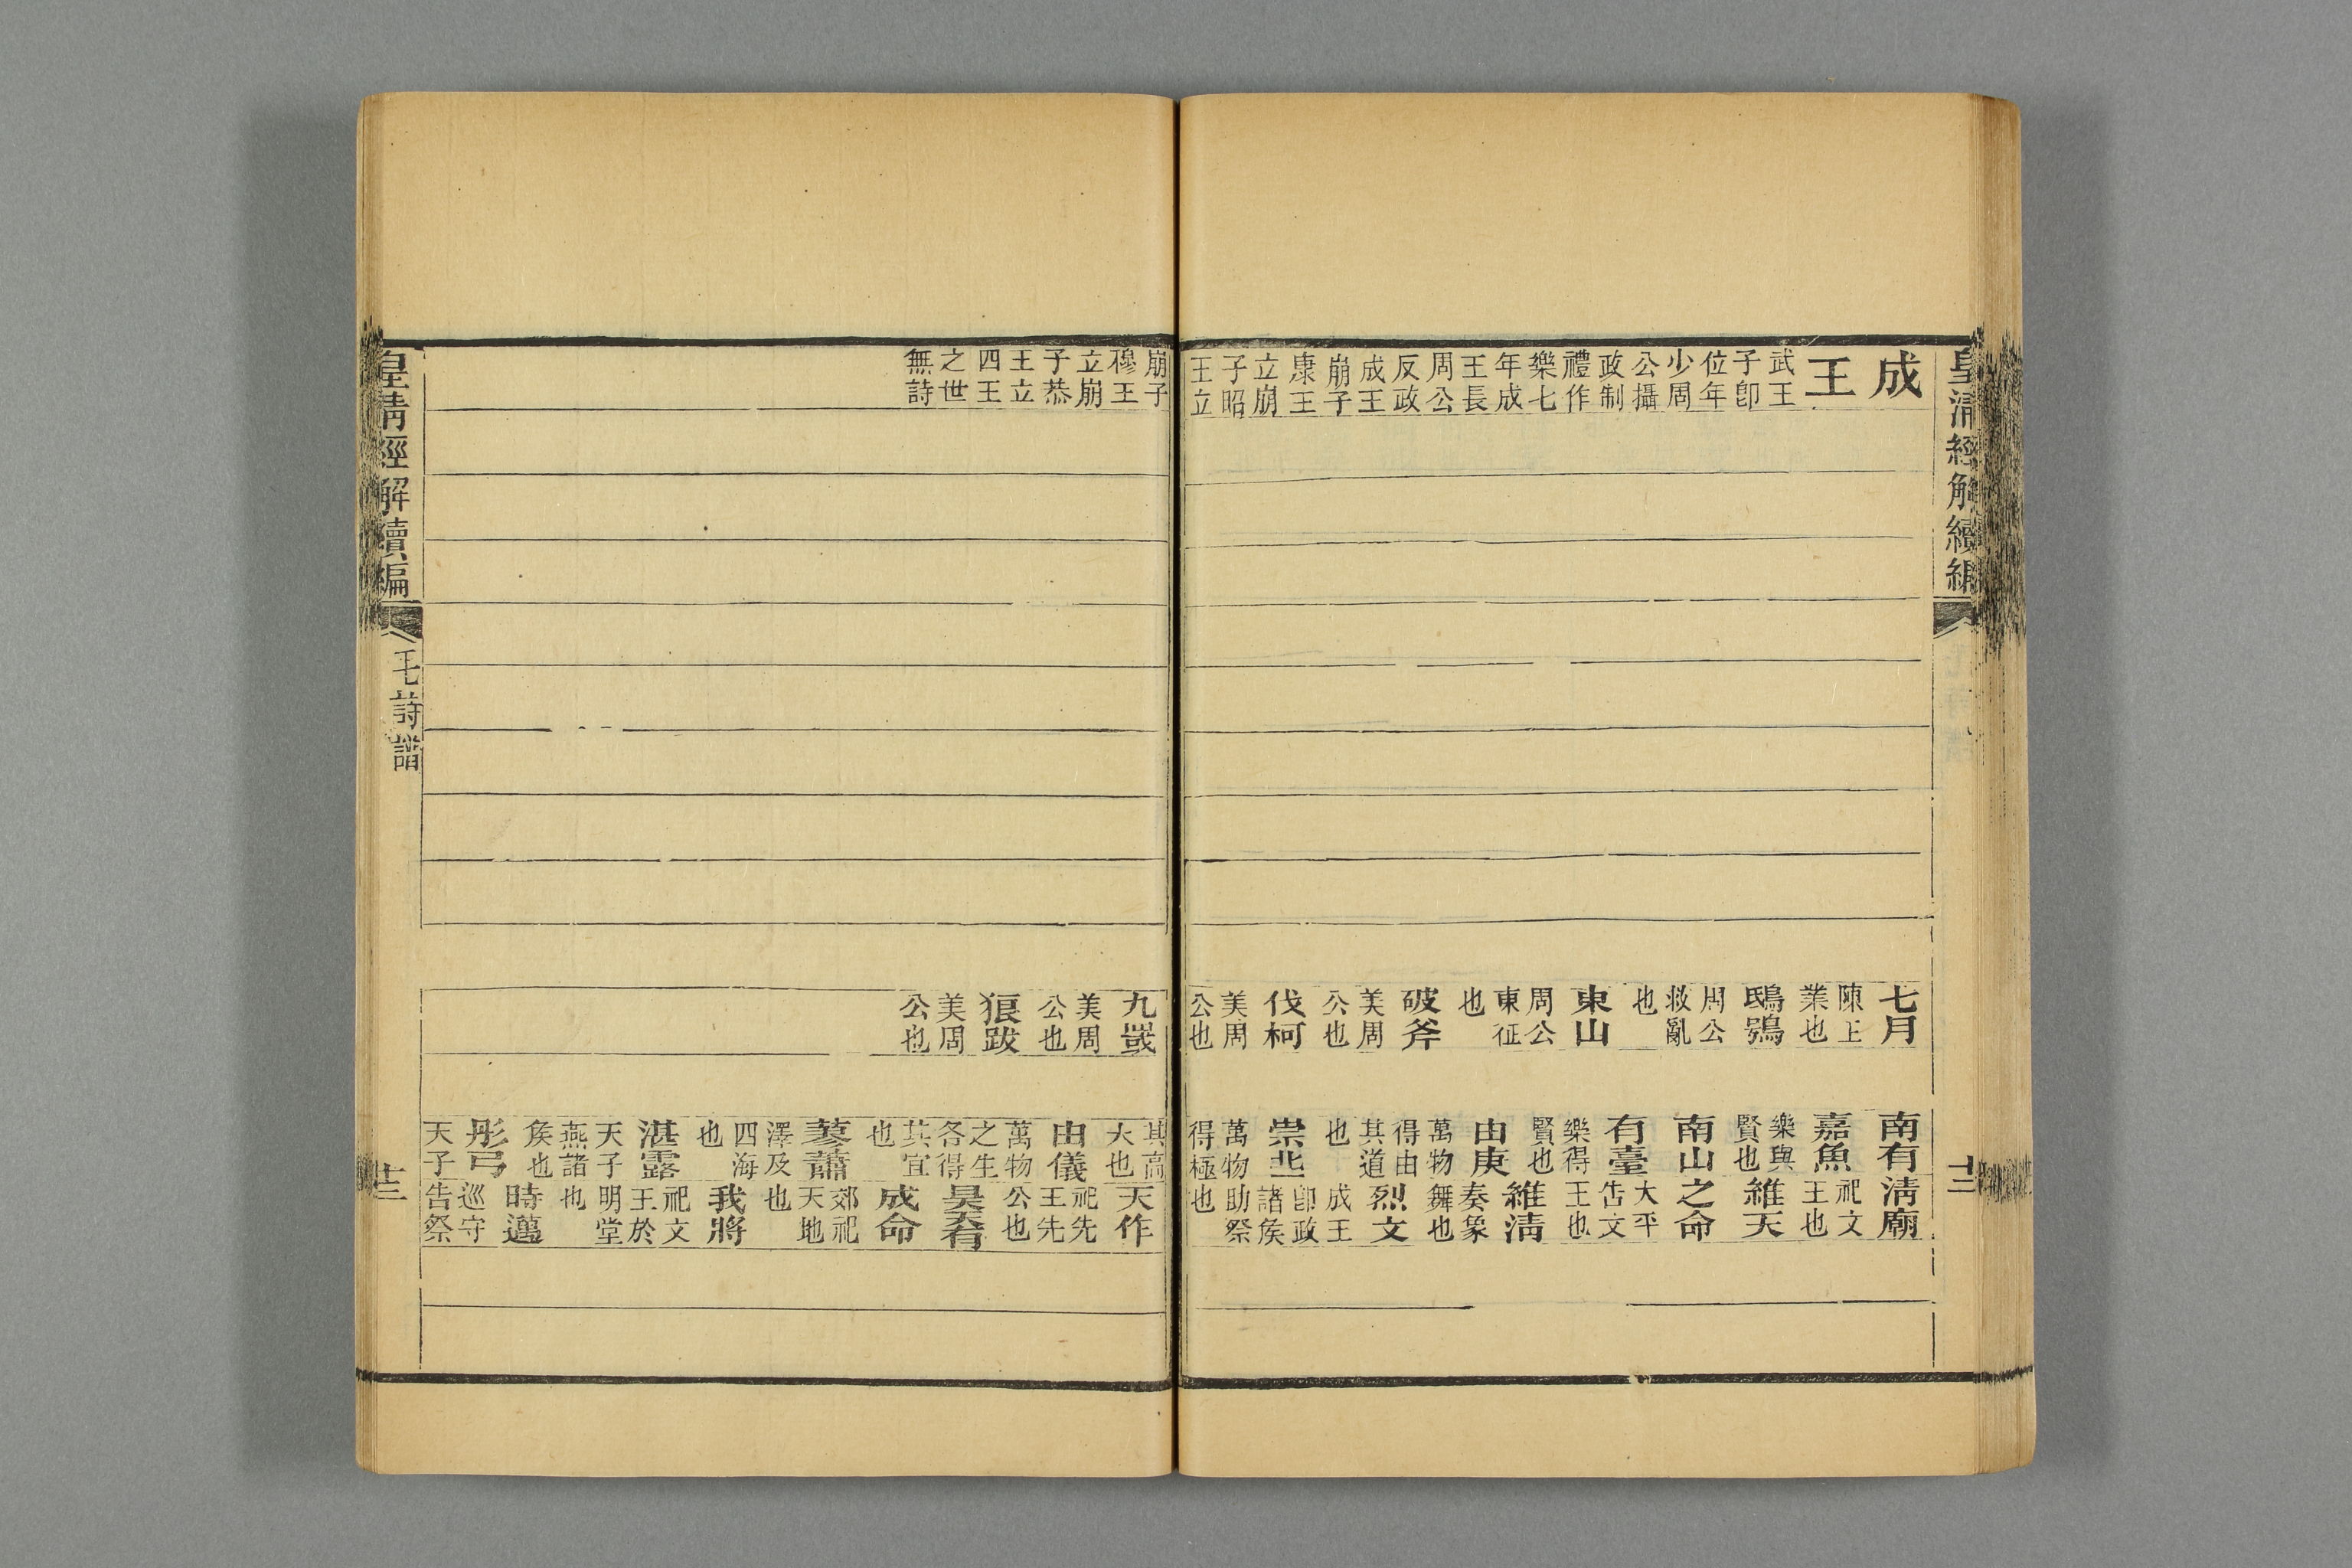 皇清經解續編
十二
成王武王子卽位年少周公攝政制禮作樂七年成王長周公反政成王崩子康王立崩子昭王立
七月陳王業也鴟鴞周公救亂也東山周公東征也破斧美周公也伐柯美周公也
南有嘉魚樂與賢也南山有臺樂得賢也由庚萬物得由其道也崇丘萬物得極
清廟祀文王也維天之命大平告文王也維清奏象舞也烈文成王卽政諸侯助祭也
崩子穆王立崩子恭王立四王之世無詩
九罭美周公也狼跋美周公也
其高大也由儀萬物之生各得其宜也蓼蕭澤及四海也湛露天子燕諸侯也彤弓天子
天作祀先王先公也昊天有成命郊祀天地也我將祀文王於明堂也時邁巡守告祭
皇清經解續編
毛詩譜
十三